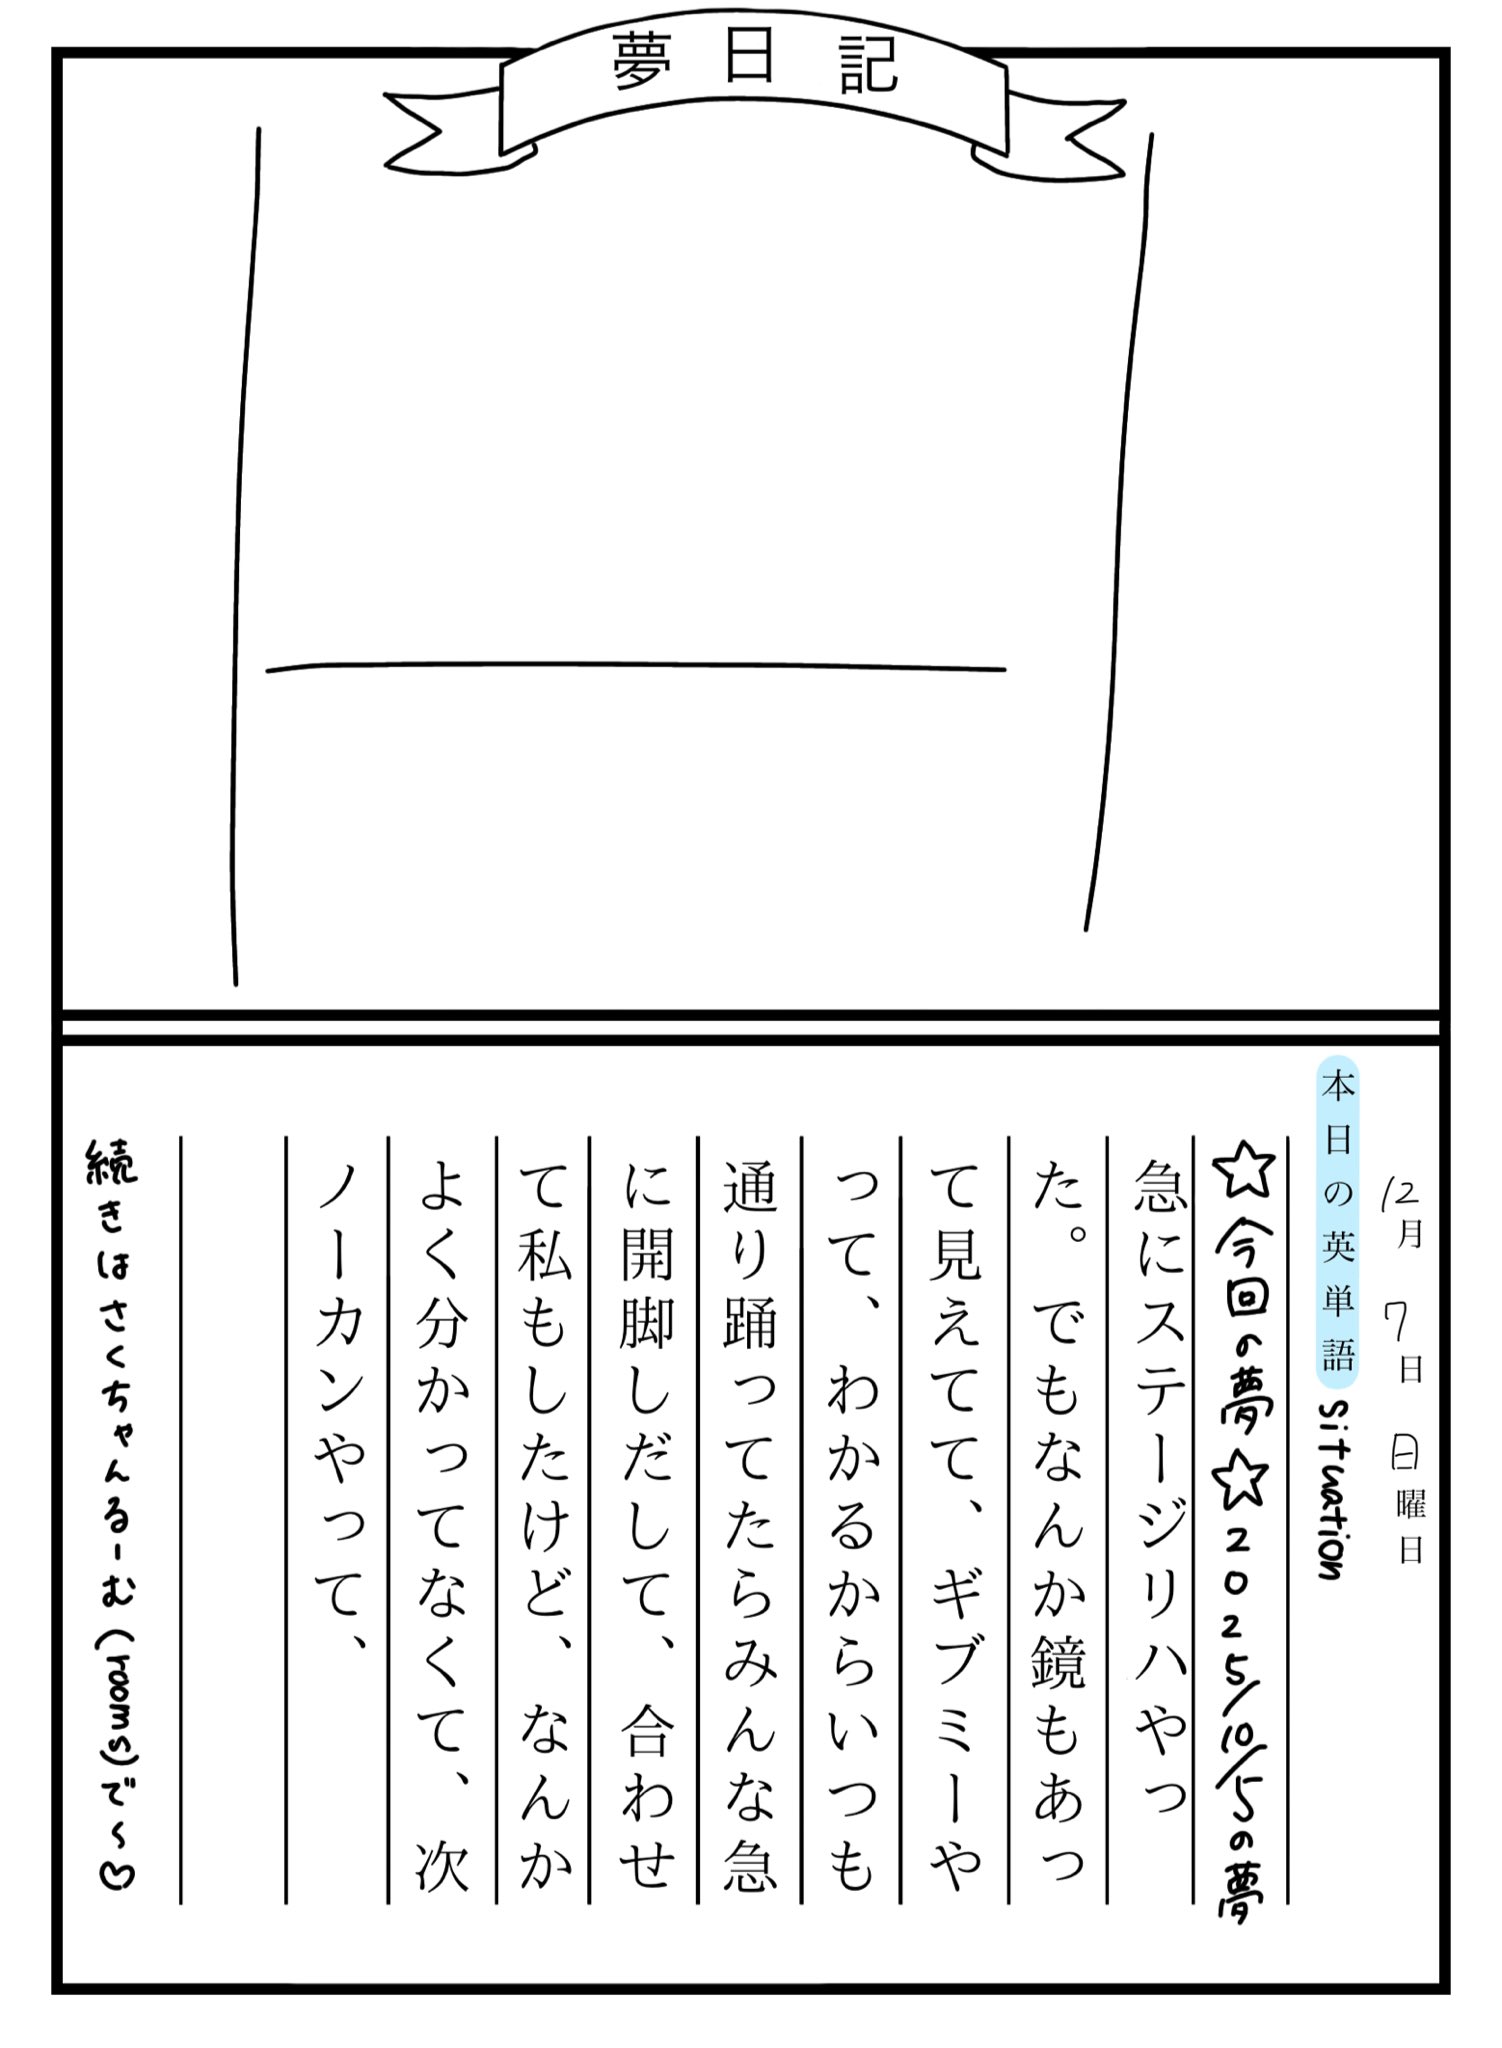 夢日記
12月7日日曜日
本日の英単語 situation
☆今回の夢☆2025/10/5の夢
急にステージリハやっ
た。でもなんか鏡もあっ
て見えてて、ギブミーや
って、わかるからいつも
通り踊ってたらみんな急
に開脚しだして、合わせ
て私もしたけど、なんか
よく分かってなくて、次
ノーカンやって、
続きはさくちゃんるーむ(rooms)で〜♡